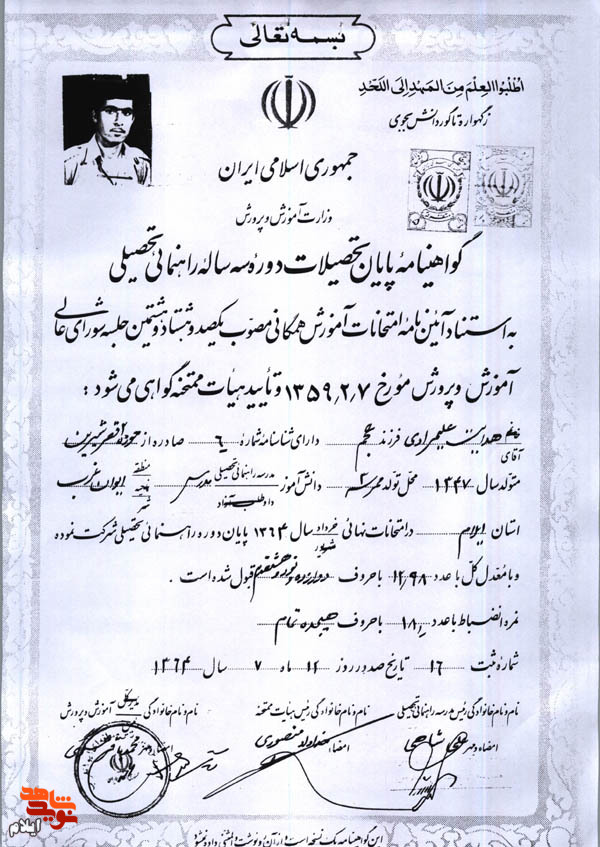 بسمه تعالی
اطلبوا العلم من المهد الی اللحد
ز گهواره تا گور دانش بجوی
جمهوری اسلامی ایران
وزارت آموزش و پرورش
گواهینامهٔ پایان تحصیلات دوره سه ساله راهنمائی تحصیلی
به استناد آئین نامهٔ امتحانات آموزش همگانی مصوب یکصد و هشتاد و هشتمین جلسه شورای عالی
آموزش و پرورش مورخ ۱۳۵۹٫۲٫۷ و تأیید هیأت ممتحنه گواهی می شود :
خانم آقای هدایت علیمرادی فرزند عجم دارای شناسنامهٔ شمارهٔ ۶ صادره از حوزه ۲ قصرشیرین
متولد سال ۱۳۴۷ محل تولد دانش آموز داوطلب آزاد مدرسه راهنمائی تحصیلی مدرس منطقه ناحیه شهر ایوان غرب
استان ایلام در امتحانات نهائی خرداد شهریور سال ۱۳۶۴ پایان دوره راهنمائی تحصیلی شرکت نموده
و با معدل کل با عدد ۱۲٫۹۸ با حروف دوازده و نود و هشت صدم قبول شده است .
نمره انضباط با عدد ۱۸ با حروف هیجده تمام
شمارهٔ ثبت ۱۶ تاریخ صدور روز ۱۲ ماه ۷ سال ۱۳۶۴
نام و نام خانوادگی رئیس مدرسه راهنمائی تحصیلی
علی شاحی
امضاء و مهر
نام و نام خانوادگی رئیس هیأت ممتحنه
خداداد منصوری
امضاء
نام و نام خانوادگی مدیر کل آموزش و پرورش
امضاء و مهر
نوید شاهد
ایلام
این گواهینامه یک نسخه است و از آن رونوشت